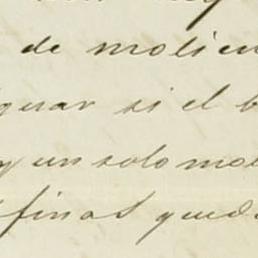 de molien
guar si el b
y un solo mol
finas queda